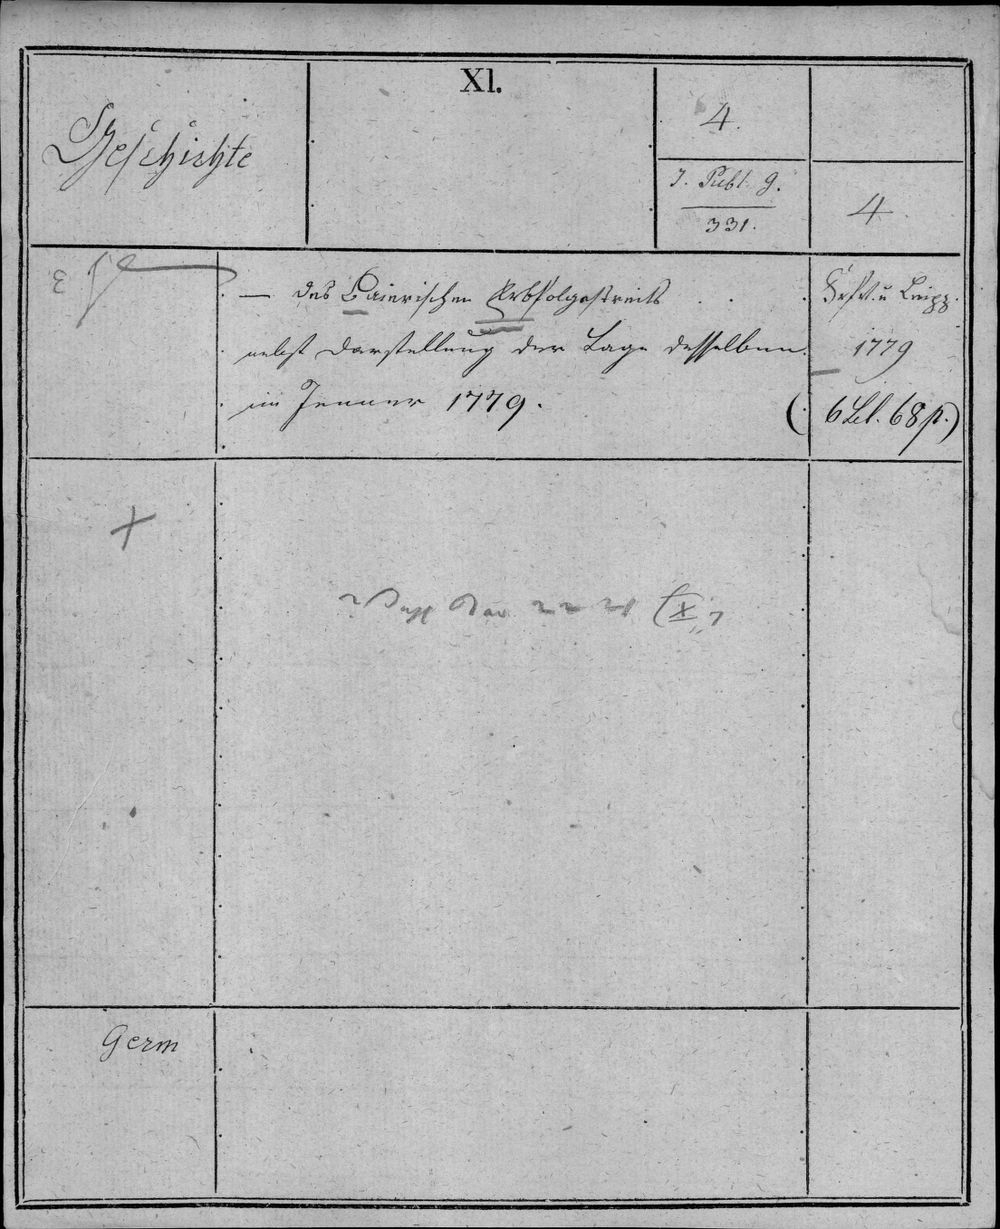 Geschichte
XI.
4.
J. Publ. g.
331.
4
— des Baierischen Erbfolgestreits . . .
nebst Darstellung der Lage desselben
im Jenner 1779.
Frkft. u Leipz.
1779
(6 Bl. 68 p.)
X
Germ